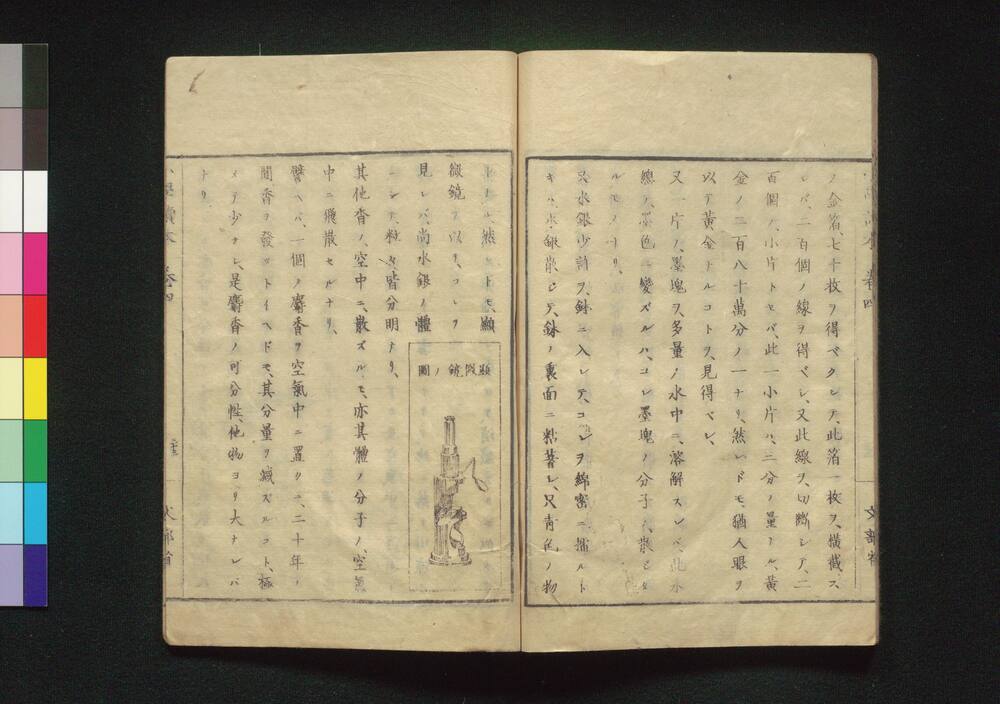 ノ金箔、七十枚ヲ得ベクシテ、此箔一枚ヲ、橫截ス
レバ、二百個ノ線ヲ得ベシ、又此線ヲ、切斷シテ、二
百個ノ、小片トセバ、此一小片ハ、三分ノ量トル、黃
金ノ二百八十萬分ノ一ナリ、然レドモ、猶人眼ヲ
以テ黃金トルコトヲ、見得ベシ、
又一片ノ、墨塊ヲ、多量ノ水中ニ、溶解スレバ、此水
總テ、墨色ニ變ズルハ、コレ墨塊ノ分子ノ、散ビタ
ルモノナリ、
又水銀少許ヲ、鉢ニ入レテ、コレヲ綿密ニ、擂ルト
キハ、水銀散ジテ、鉢ノ裏面ニ粘著シ、只靑色ノ物
トナル、然レトモ、顯
微鏡ヲ以テ、コレヲ
見レバ、尚水銀ノ體
ニシテ、粒々皆分明ナリ、
顯微鏡ノ圖
其他香ノ、空中ニ、散ズルモ、亦其體ノ分子ノ、空氣
中ニ飛散セルナリ、
譬ヘバ、一個ノ麝香ヲ空氣中ニ置クニ、二十年ノ
間香ヲ發ツトイヘドモ、其分量ヲ減ズルコト、極
メテ少ナシ、是麝香ノ可分性、他物ヨリ大ナレバ
ナリ、
卷四
文部省